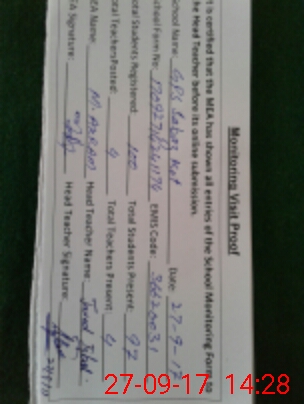 Monitoring Visit Proof
It is certified that the MEA has shown all entries of the School Monitoring Form to
the Head Teacher before its online submission.
School Name: GPS Date: 27-9-17
School Form No: EMIS Code:
Total Students Registered: 100 Total Students Present: 92
Total Teachers Posted: 4 Total Teachers Present: 4
MEA Name: M. AKRAM Head Teacher Name:
MEA Signature: Head Teacher Signature:
27-09-17 14:28